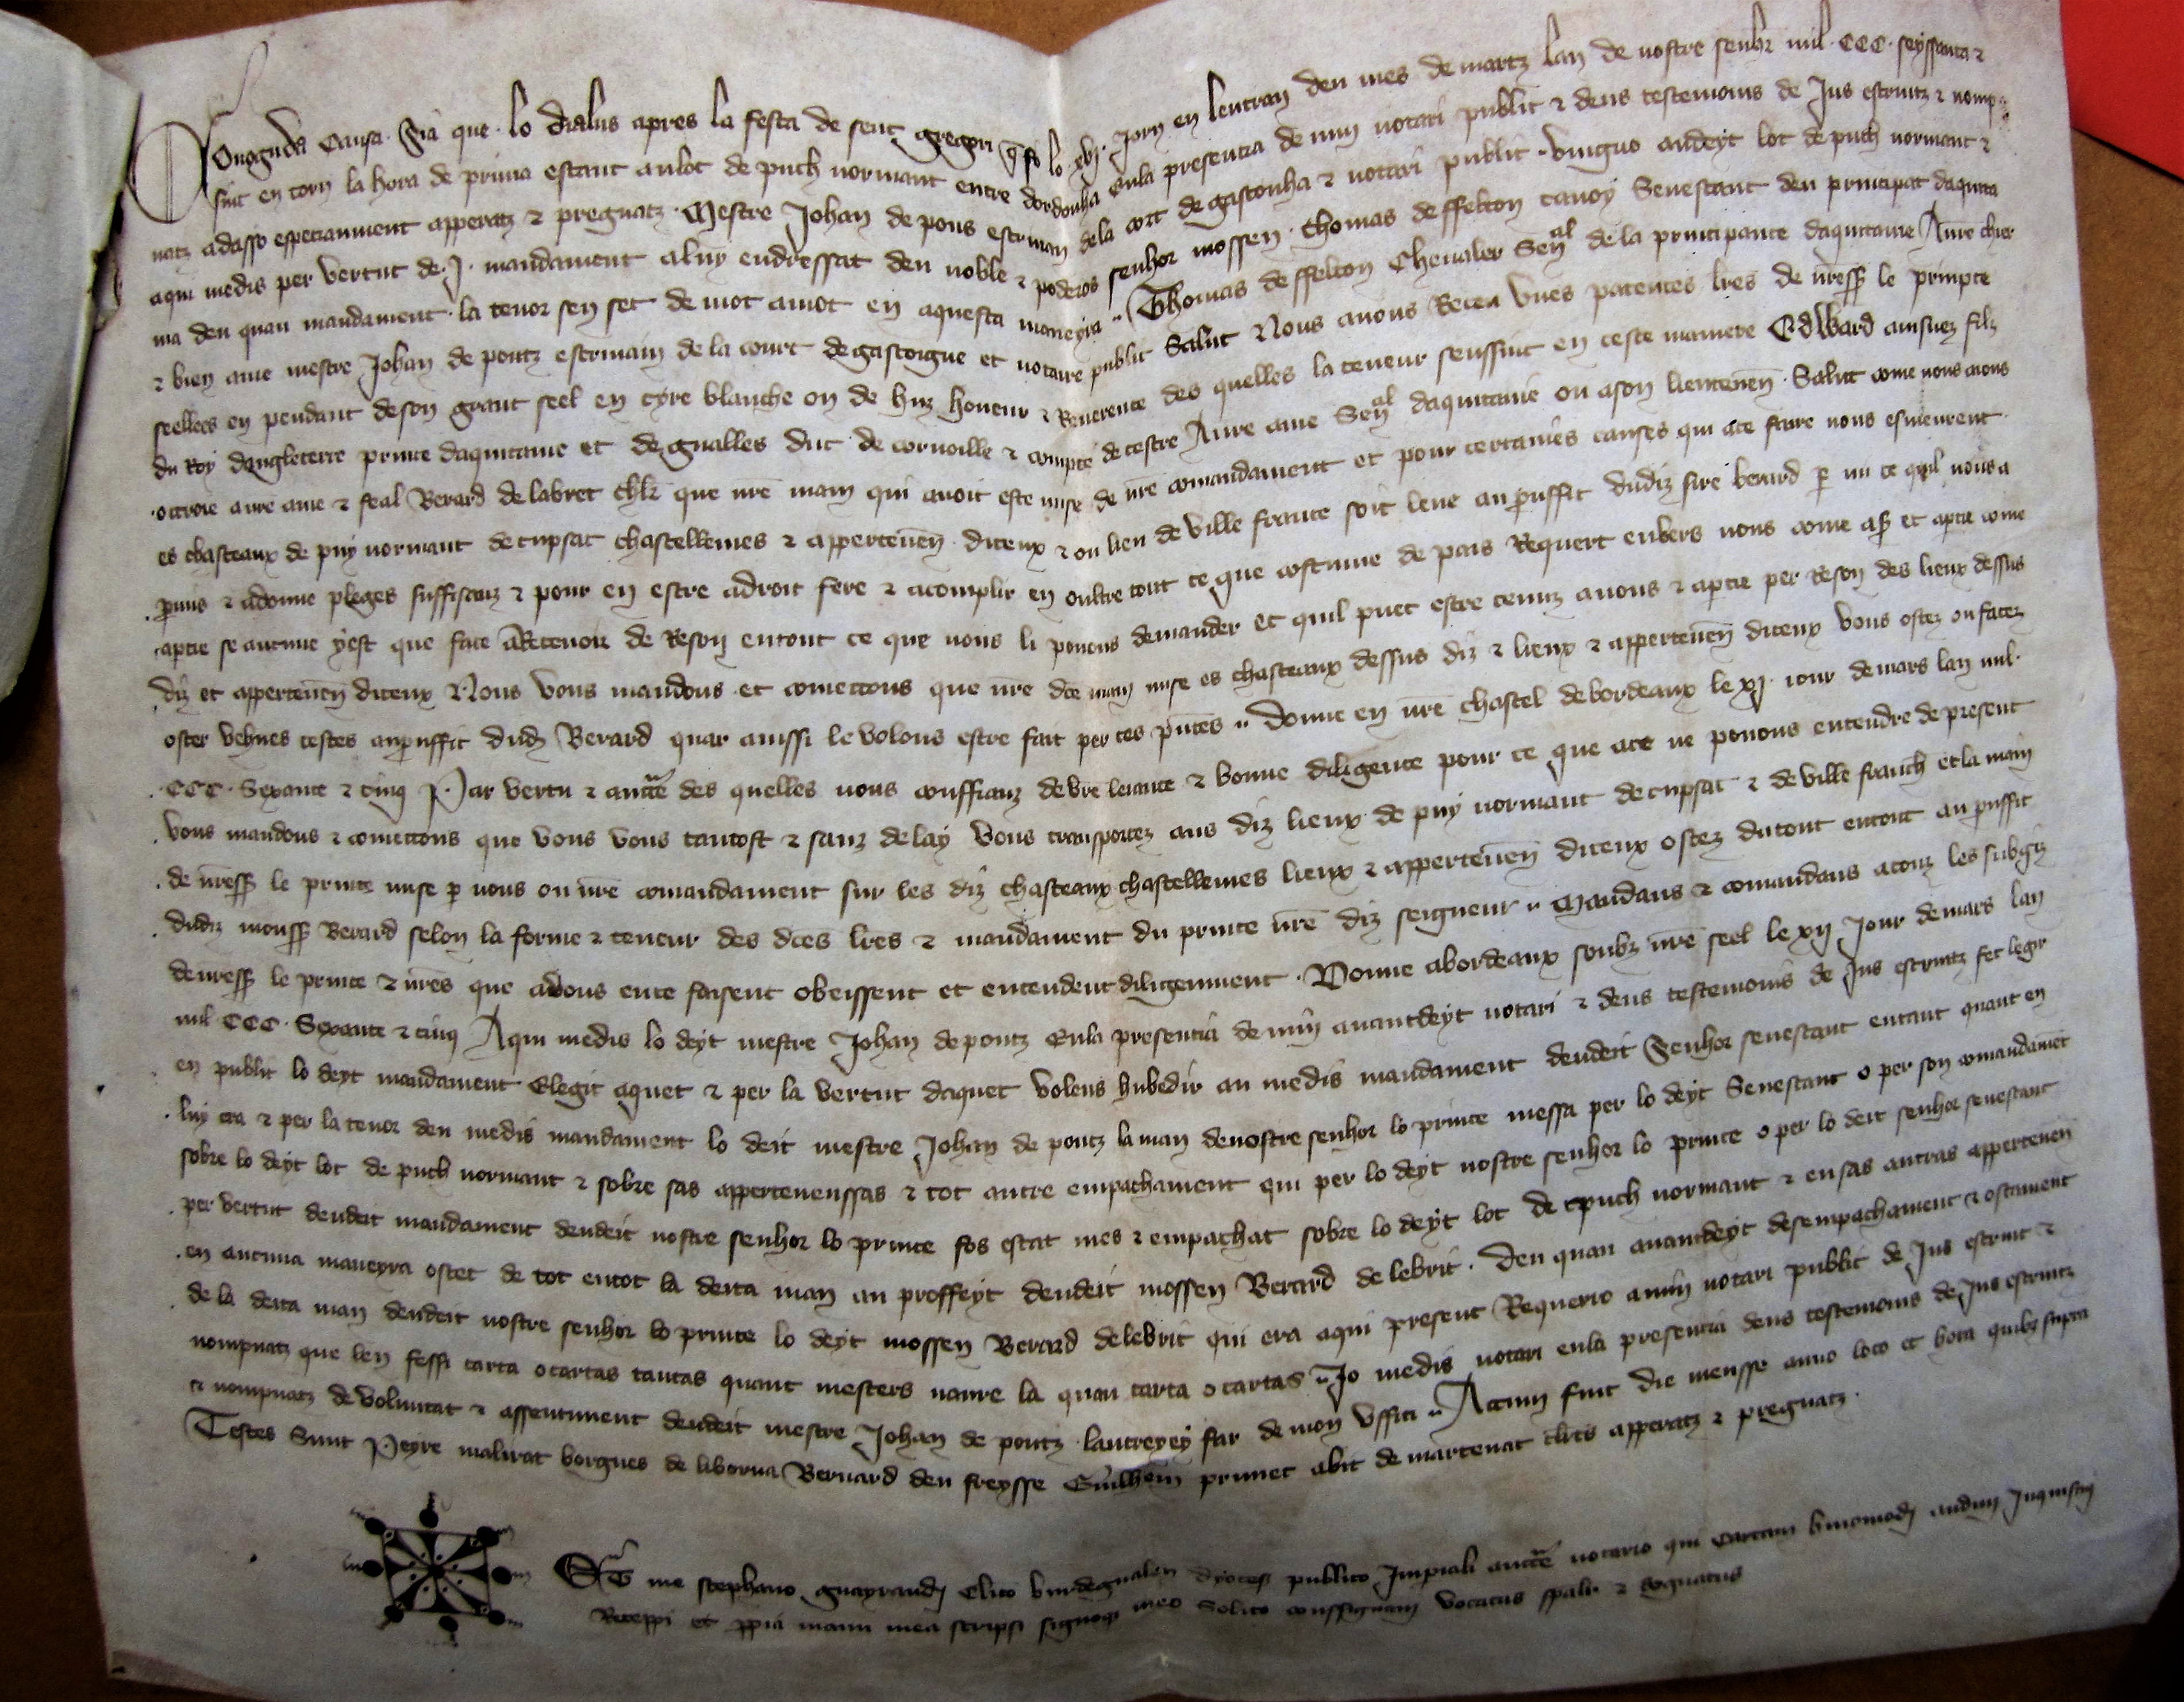 Conoguda Causa Sia que lo dialus apres la festa de sent gregori q̄ fo lo xvj. Jorn en lentran deu mes de martz lan de nostre senhr mil CCC seyssanta &
sinc en torn la hora de prima estant au loc de puch normant entre dordonha Enla presencia de min notari public & deus testemonis de Jus escriutz & nomp
natz adasso espectaument apperatz & pregnatz Mestre Johan de pons escriuan dela cort de gasconha & notari public vinguo audeyt loc de puch normant &
aqui medis per vertut de j. mandament aluy endressat deu noble & poderos senhor mossen Thomas de ffelton cauoy Senescaut deu principat daquita
nia deu quau mandament la tenor sen set de mot amot en aquesta maneyra Thomas de ffelton Cheualer Senal de la principaute daquitaine A nre chier
& bien ame mestre Johan de pontz escriuain de la court de gascoigne et notaire public Salut Nous auons Receu vnes patentes lres de nressr le prince
seellees en pendant deson grant seel en cyre blanche on de hnz honeur & Reuerence des quelles la teneur senssuit en ceste maniere Edward ainsnez filz
du Roy dangleterre prince daquitaine et de gualles duc de cornoille & compte de cestre A nre ame Senal daquitaine ou ason lieutenen Salut come nous aions
ottroie a nre ame & feal Berard de labret chlr que nre main qui auoit este mise de nre comandament et pour certaines causes qui ace faire nous esmeurent
es chasteaux de puy normant de cupsac chastellenies & appertenen diceux & ou lieu de ville france soit leue au puffit dudiz sire berard p mi ce quil nous a
pmis & adonne pleges suffisanz & pour en estre adroit fere & acomplir en oultre tout ce que costume de pais Requert enuers nous come aps et aptie come
aptie se aucune yest que face aRetenoir de Reson entout ce que nous li pouons demander et quil puet estre tenuz auons & aptie per Reson des lieux dessus
diz et appertenen diceux Nous vous mandons et comettons que nre dce main mise es chasteaux dessus diz & lieux & appertenen diceux vous ostez ou facez
oster vehues cestes au puffit dudz Berard quar aussi le volons estre fait per ces pntes donne en nre chastel de bordeaux le xj. iour de mars lan mil
CCC Sexante & cinq Par vertu & aucte des quelles nous conffianz de vre leiaute & bonne diligence pour ce que ace ne pouons entendre de present
vous mandons & comettons que vous vous tantost & sanz delay vous transportez aus diz lieux de puy normant de cupsac & de ville franch et la main
de nressr le prince mise p nous ou nre comandament sur les diz chasteaux chastellenies lieux & appertenen diceux ostez dutout entout au puffit
dudiz monssr Berard selon la forme & teneur des dces lres & mandament du prince nre diz seigneur Mandans & comandans atouz les subgiz
de nressr le prince & nres que auous ence faisent obeissent et entendent diligenment Donne abordeaux soubz nre seel le xij Jour de mars lan
mil CCC Sexante & cinq Aqui medis lo deyt mestre Johan de pontz Enla presencia de min auantdeyt notari & deus testemonis de Jus escriutz fet legir
en public lo deyt mandament Elegit aquet & per la vertut daquet volens hubedir au medis mandament deudeit Senhor senescaut entant quant en
luy era & per la tenor deu medis mandament lo deit mestre Johan de pontz la man de nostre senhor lo prince messa per lo deyt Senescaut o per son comandamet
sobre lo deyt loc de puch normant & sobre sas appertenenssas & tot autre empachament qui per lo deyt nostre senhor lo prince o per lo deit senhor senescaut
per vertut deudeit mandament deudeit nostre senhor lo prince fos estat mes & empachat sobre lo deyt loc de puch normant & en sas autras appertenen
en aucuna maneyra ostet de tot entot la deita man au proffeyt deudeit mossen Berard de lebrit Deu quau auantdeyt desempachament & ostament
de la deita man deudeit nostre senhor lo prince lo deyt mossen Berard delebrit qui era aqui present Requerio a min notari public de Jus escriut &
nompnatz que len fessi carta o cartas tantas quant mesters naure la quau carta o cartas Jo medis notari enla presencia deus testemonis de Jus escriutz
& nompnatz de voluntat & assentiment deudeit mestre Johan de pontz lautreyey far de mon vffici Actum fuit die mensse anno loco et hora quibz supra
Testes Sunt Peyre malirat borgues de liborna Bernard deu freysse Guilhem prunet abit de martenac clers apperatz & pregnatz
Et me stephano guayraudj Clico burdegualen dyoces publico Impiali aucte notario qui Cartam huiusmodj audiui Inquisiuj
Recepi et ppia manu mea scripsi signoqz meo Solito conssignaui vocatus spalr & Roguatus